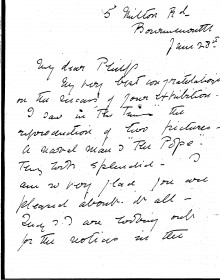 5 Milton Rd
Bournemouth
June 23rd
My dear Philip
My very best congratulations
on the success of your Exhibition.
I saw in the "Times" the
reproduction of two pictures -
A naval man & "The Pope".
They both splendid - I
am so very glad you are
pleased about it all -
& I are looking out
for the notices in the